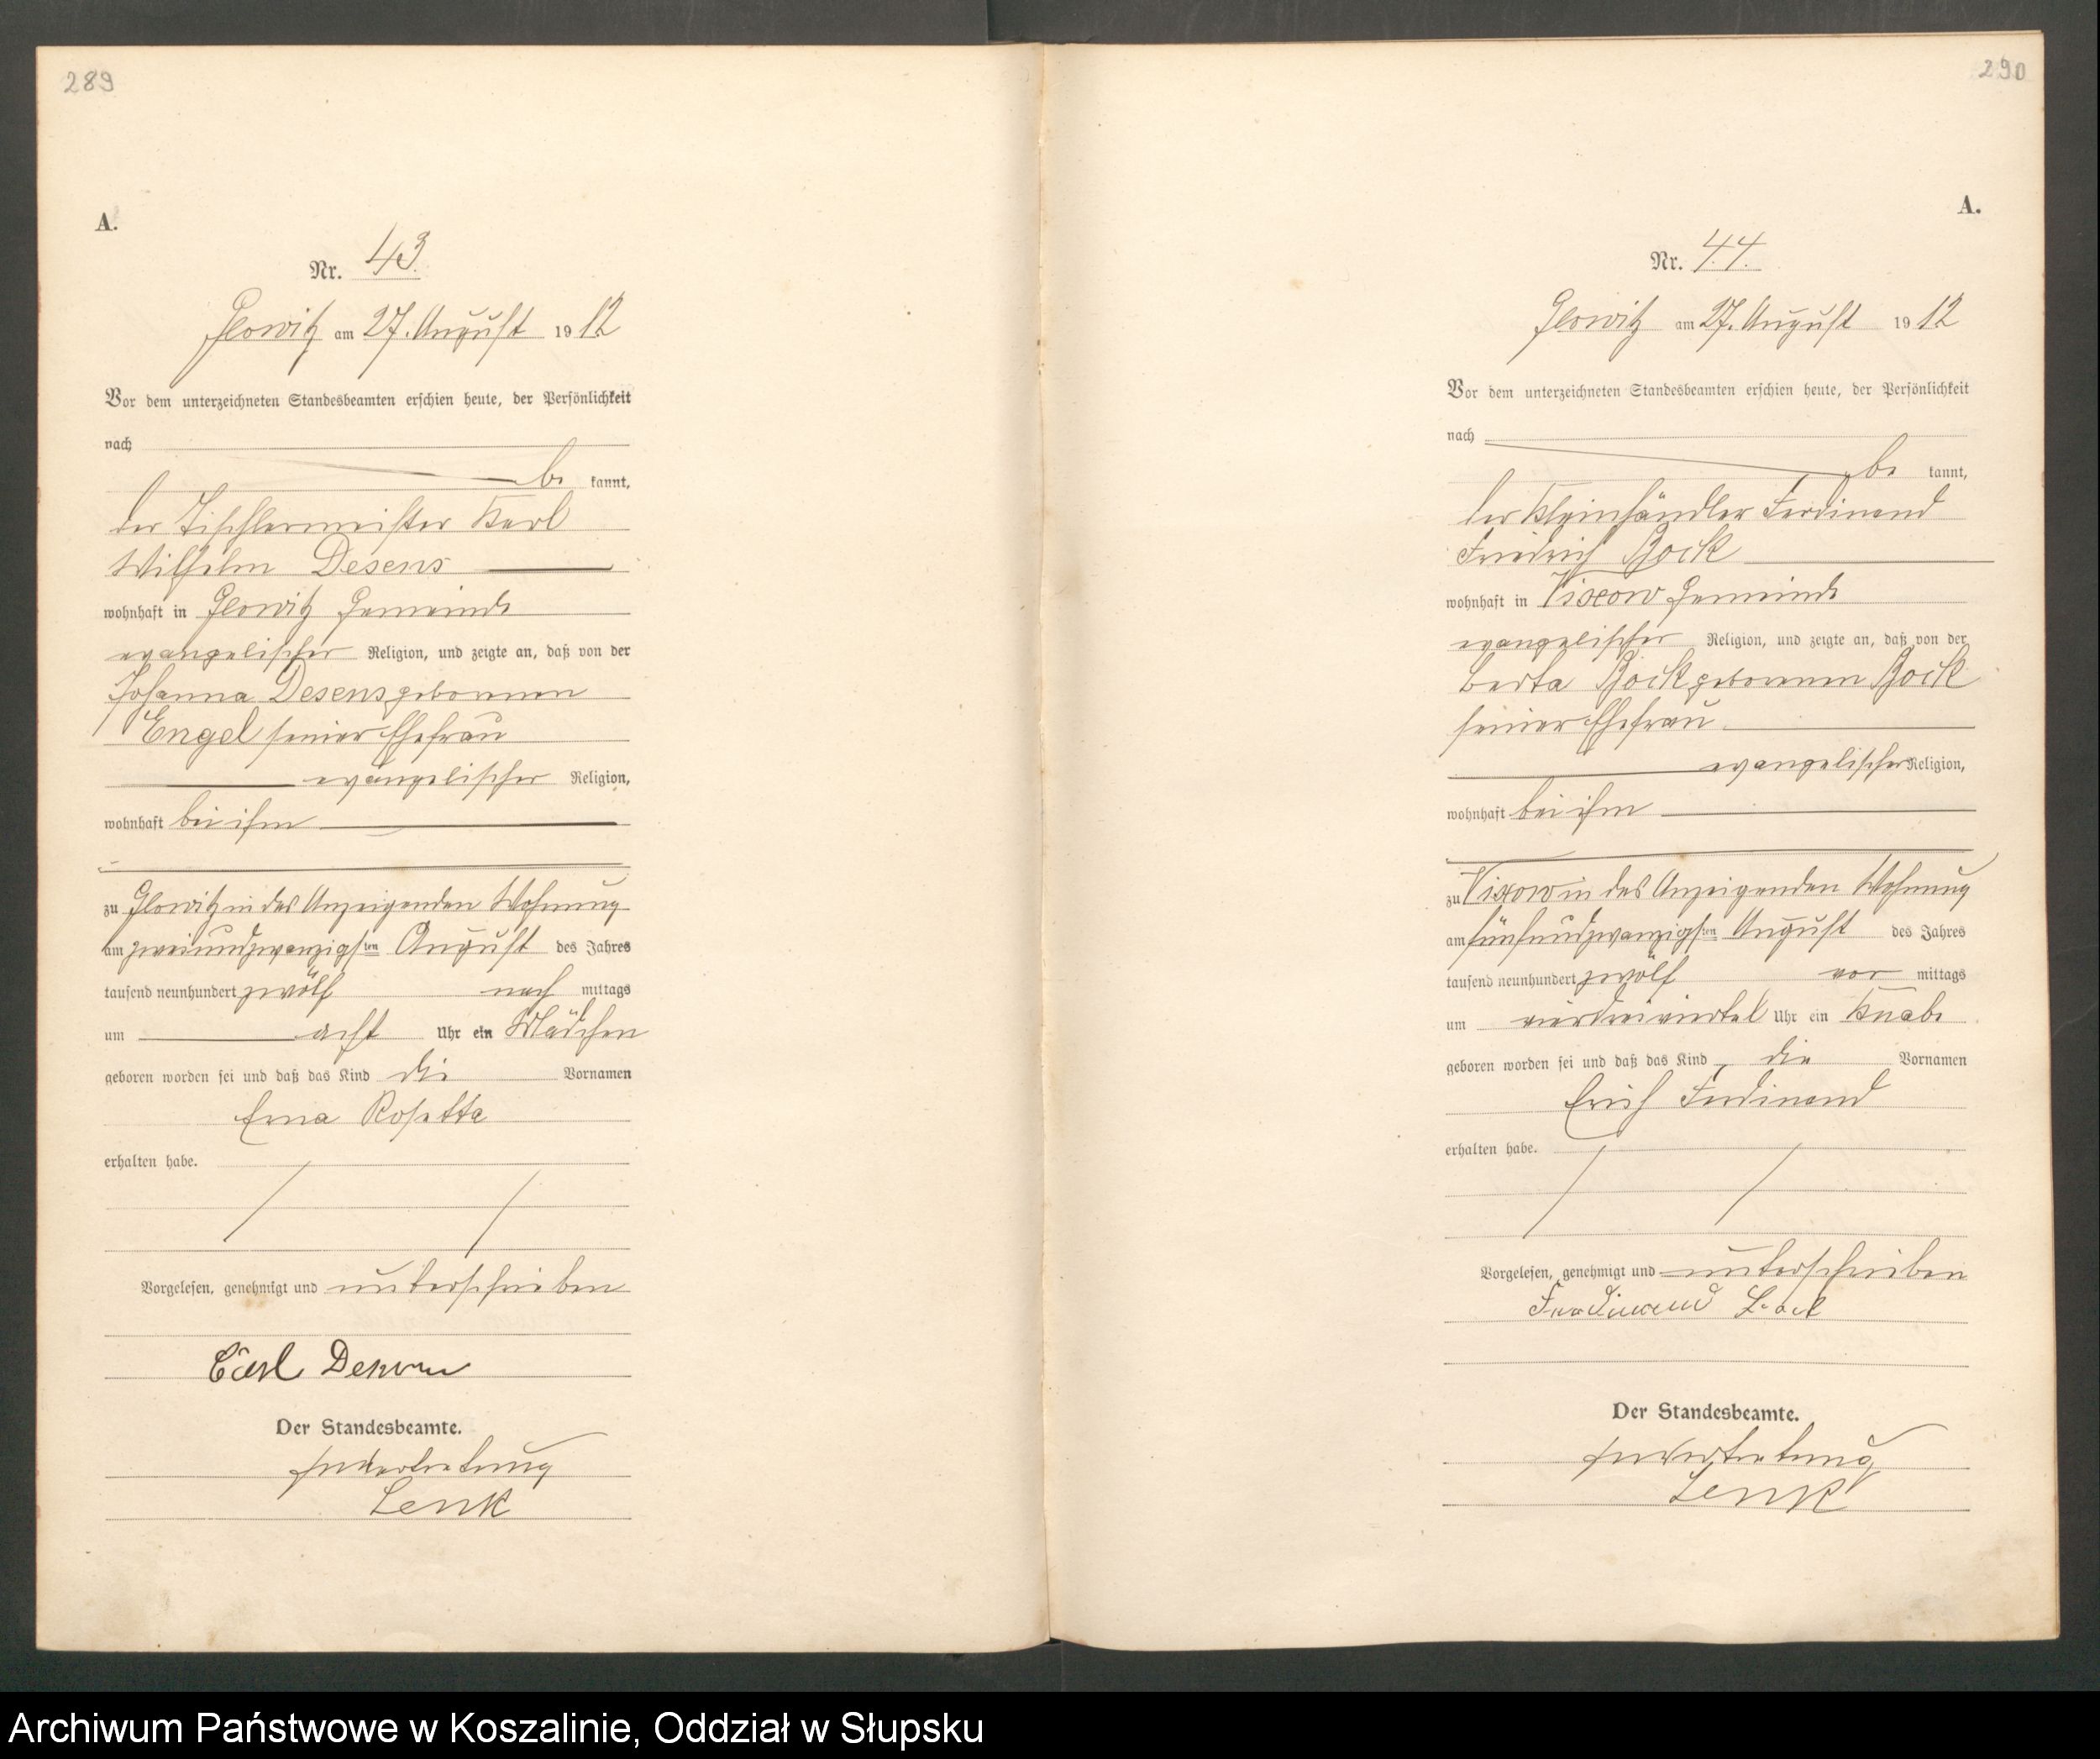 289
A.
Nr. 43.
Glowitz am 27. August 1912
Vor dem unterzeichneten Standesbeamten erschien heute, der Persönlichkeit
nach
be kannt,
der Tischlermeister Karl
Wilhelm Desens
wohnhaft in Glowitz Gemeinde
evangelischer Religion, und zeigte an, daß von der
Johanna Desens geborenen
Engel seiner Ehefrau
evangelischer Religion,
wohnhaft bei ihm
zu Glowitz in des Anzeigenden Wohnung
am zweiundzwanzigsten August des Jahres
tausend neunhundert zwölf nach mittags
um acht Uhr ein Mädchen
geboren worden sei und daß das Kind die Vornamen
Erna Rosette
erhalten habe.
Vorgelesen, genehmigt und unterschrieben
Carl Desens
Der Standesbeamte.
In Vertretung
Lenk
290
A.
Nr. 44.
Glowitz am 27. August 1912
Vor dem unterzeichneten Standesbeamten erschien heute, der Persönlichkeit
nach
be kannt,
der Kleinhändler Ferdinand
Friedrich Bock
wohnhaft in Vixow Gemeinde
evangelischer Religion, und zeigte an, daß von der
Berta Bock geborenen Bock
seiner Ehefrau
evangelischer Religion,
wohnhaft bei ihm
zu Vixow in des Anzeigenden Wohnung
am fünfundzwanzigsten August des Jahres
tausend neunhundert zwölf vor mittags
um vierdreiviertel Uhr ein Knabe
geboren worden sei und daß das Kind die Vornamen
Erich Ferdinand
erhalten habe.
Vorgelesen, genehmigt und unterschrieben
Ferdinand Bock
Der Standesbeamte.
In Vertretung
Lenk
Archiwum Państwowe w Koszalinie, Oddział w Słupsku